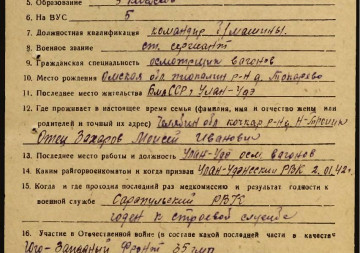 5. Образование 3 классов
6. На ВУС 5
7. Должностная квалификация командир машины.
8. Военное звание ст. сержант
9. Гражданская специальность осмотрщик вагонов
10. Место рождения Омская обл р-н д. Токарево
11. Последнее место жительства БМАССР г Улан-Удэ
12. Где проживает в настоящее время семья (фамилия, имя и отчество жены или
родителей и точный их адрес) Челябин обл р-н д.
Отец Захаров Моисей Иванович
13. Последнее место работы и должность Улан-Удэ осм. вагонов
14. Каким райгорвоенкоматом и когда призван Улан-Удэнским РВК 2.01.42г.
15. Когда и где проходил последний раз медкомиссию и результат годности к
военной службе Сарапульский РВК
годен к строевой службе
16. Участие в Отечественной войне (в составе какой последней части в качестве
Юго-Западный Фронт 35